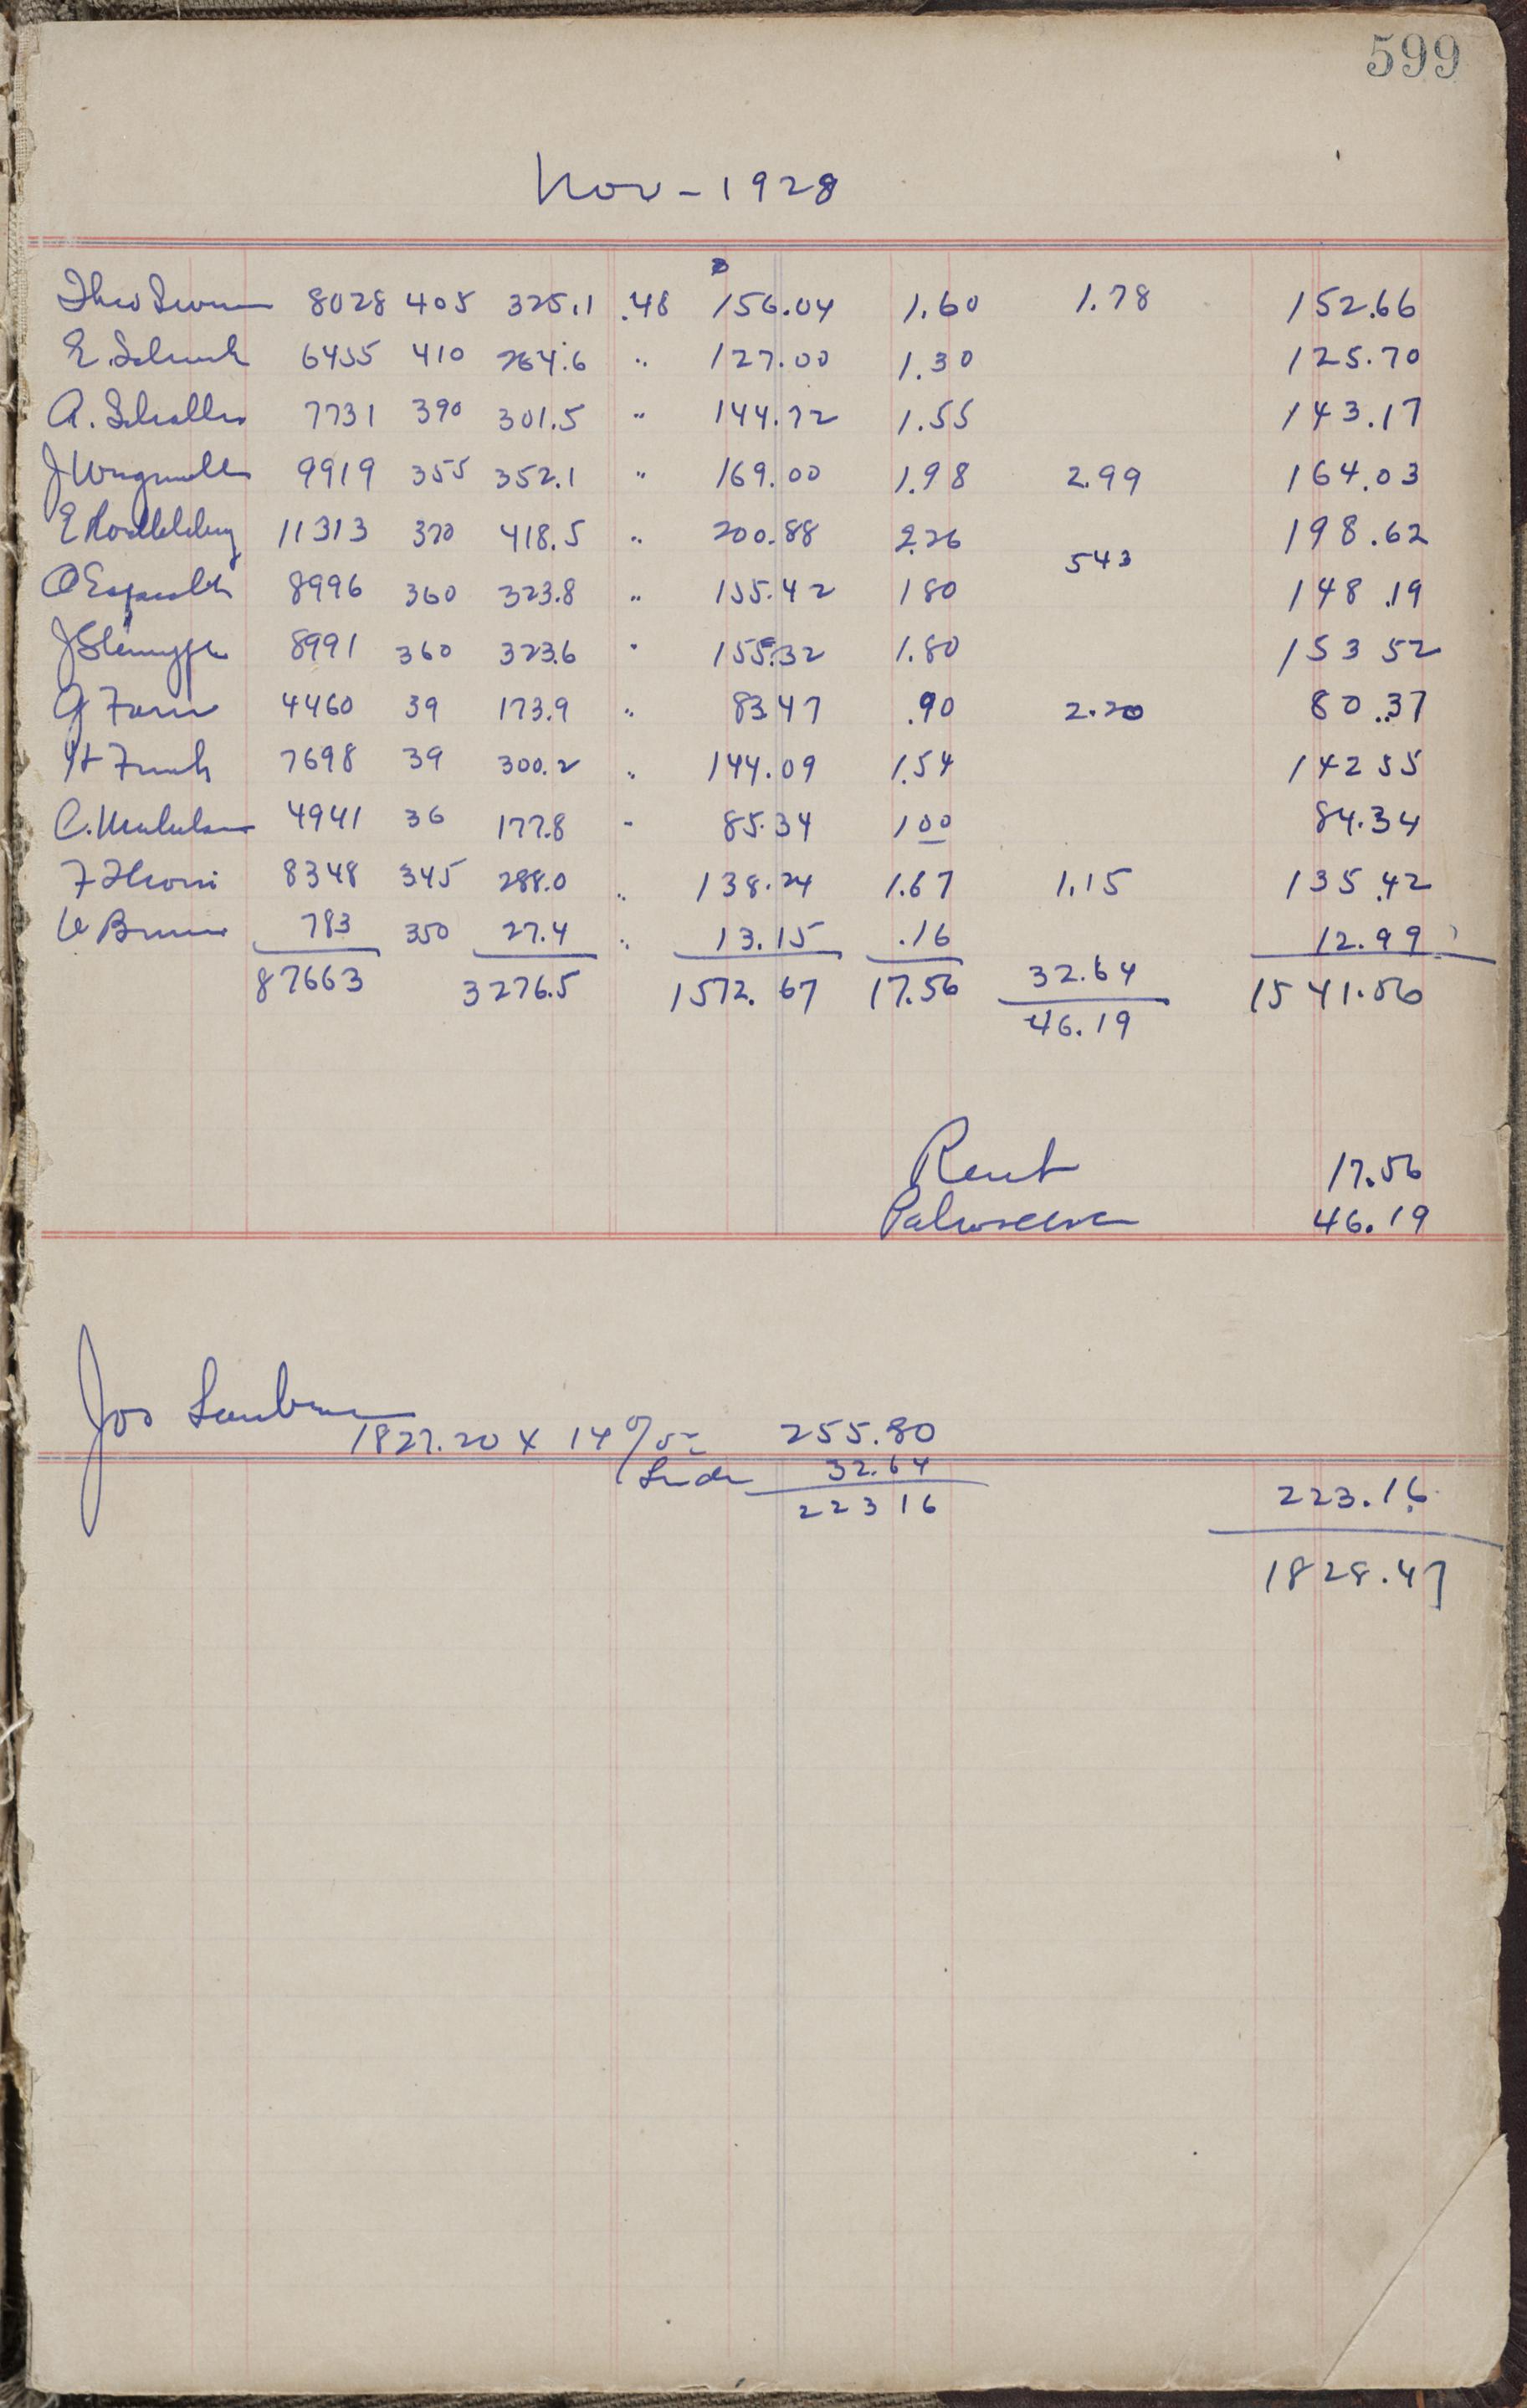 599
Nov - 1928
Theo 8028 405 325.1 .48 156.04 1.60 1.78 152.66
E. Schenk 6455 410 264.6 " 127.00 1.30 125.70
A. 7731 390 301.5 " 144.72 1.55 143.17
J 9919 355 352.1 " 169.00 1.98 2.99 164.03
E 11313 370 418.5 " 200.88 2.26 198.62
O 8996 360 323.8 " 155.42 1 80 543 148.19
J 8991 360 323.6 " 155.32 1.80 153 52
G 4460 39 173.9 " 83 47 .90 2.20 80.37
H 7698 39 300.2 " 144.09 1.54 142 55
C. 4941 36 177.8 " 85.34 1 00 84.34
F 8348 345 288.0 " 138.24 1.67 1.15 135.42
783 350 27.4 " 13.15 .16 12.99
87663 3276.5 1572.67 17.56 32.64 1541.56
46.19
Rent 17.56
46.19
Jos
1827.20 x 14 % 255.80
32.64
223 16 223.16
1828.47